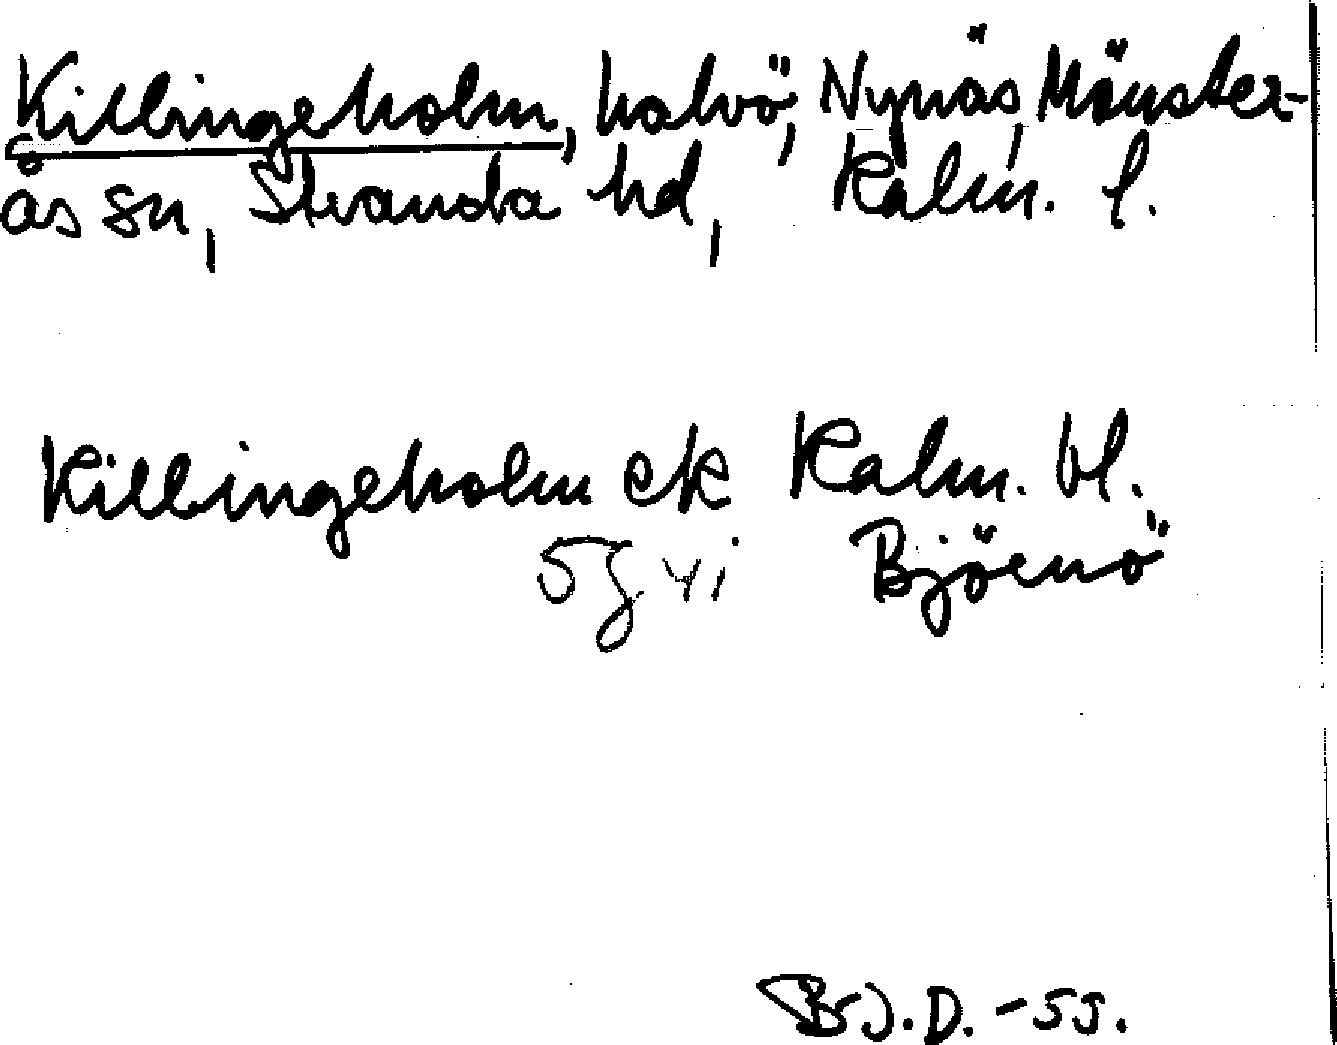 Killingeholm, halvö, Nynäs, Mönster-
ås sn, Stranda hd, Kalm. l.
Killingeholm ek Kalm. bl.
5g vi Björnö
Br J. D. -55.